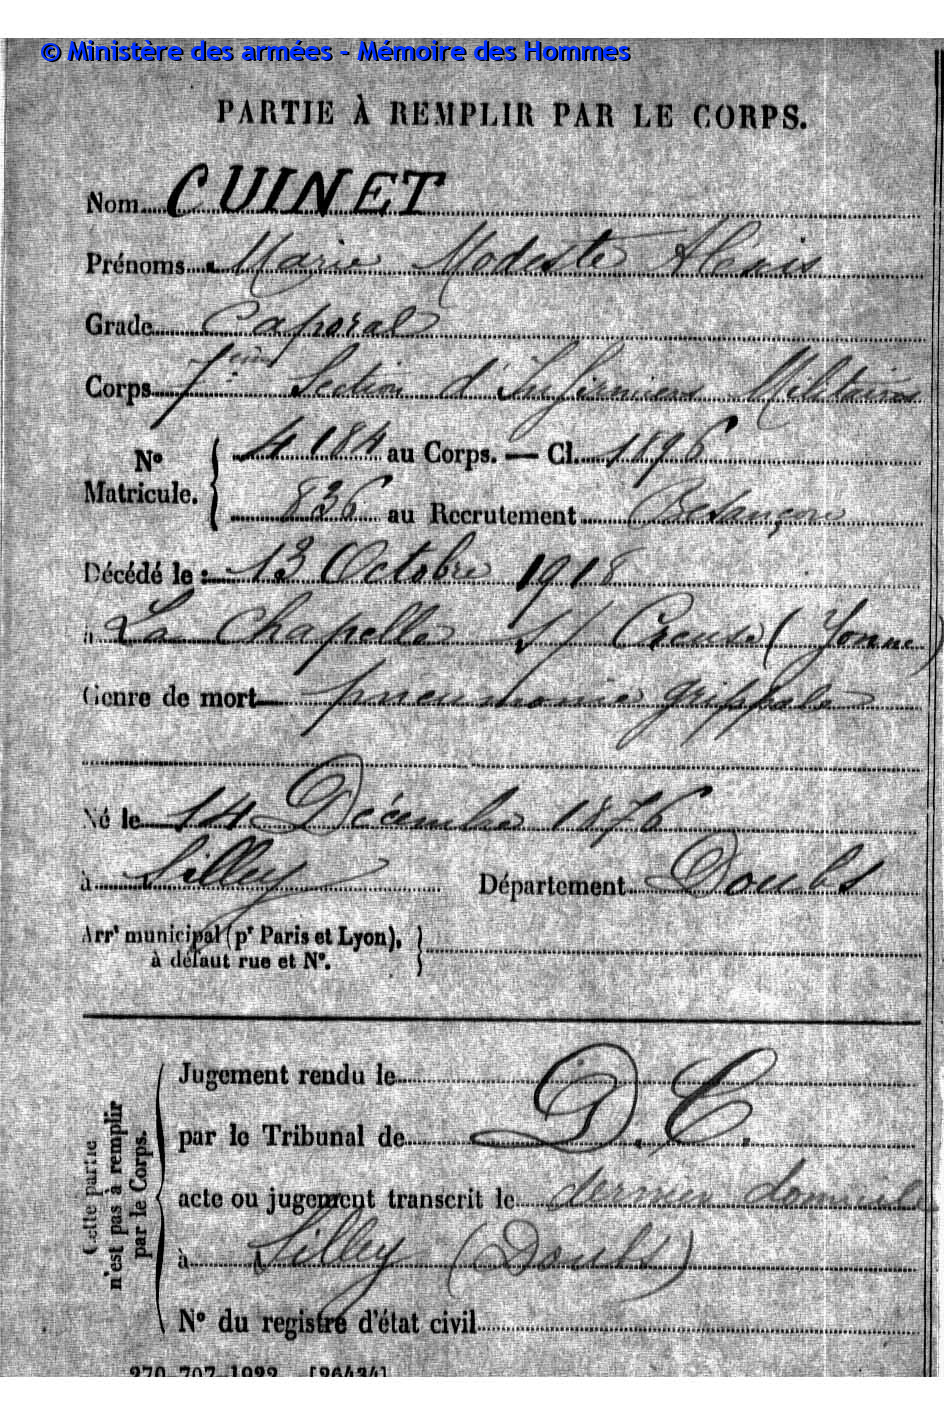 © Ministère des armées - Mémoire des Hommes
PARTIE À REMPLIR PAR LE CORPS.
Nom CUINET
Prénoms Marie Modeste Alexis
Grade Caporal
Corps 7ème Section d'Infirmiers Militaires
No Matricule. { 4184 au Corps. — Cl. 1896
836 au Recrutement Besançon
Décédé le : 13 Octobre 1918
à La Chapelle s/ Creuse (Yonne)
Genre de mort pneumonie grippale
Né le 14 Décembre 1876
à Silley Département Doubs
Arrt municipal (pr Paris et Lyon),
à défaut rue et No.
Cette partie
n'est pas à remplir
par le Corps.
Jugement rendu le
par le Tribunal de D. C.
acte ou jugement transcrit le dernier domicile
à Silley (Doubs)
No du registre d'état civil
270-707-1922. [26434]